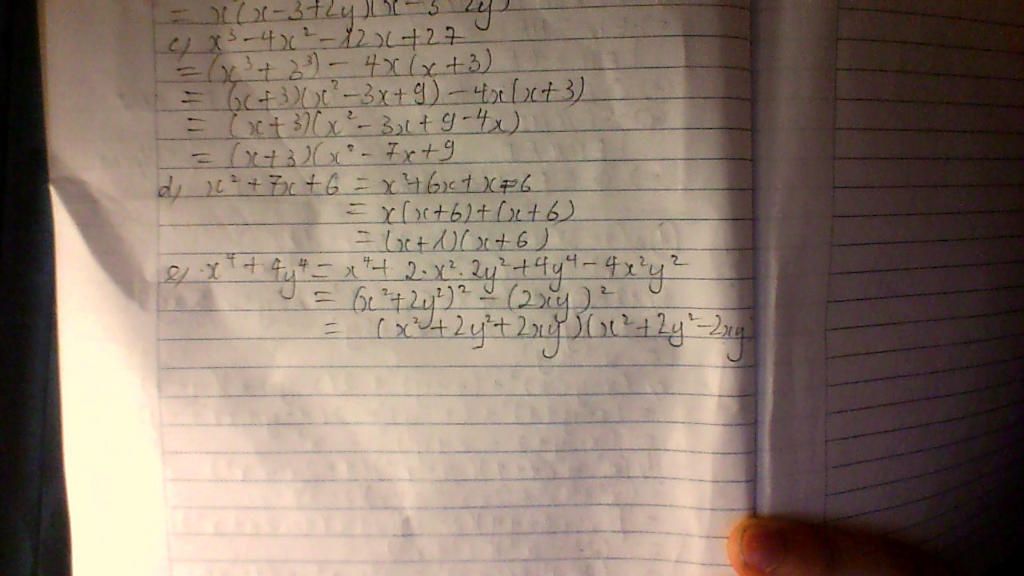 = x(x-3+2y)(x-3-2y)
c) x³-4x²-12x+27
= (x³+3³) - 4x(x+3)
= (x+3)(x²-3x+9) - 4x(x+3)
= (x+3)(x²-3x+9-4x)
= (x+3)(x²-7x+9
d) x²+7x+6 = x²+6x+x+6
= x(x+6)+(x+6)
= (x+1)(x+6)
e) x⁴+4y⁴ = x⁴+2.x².2y²+4y⁴-4x²y²
= (x²+2y²)² - (2xy)²
= (x²+2y²+2xy)(x²+2y²-2xy